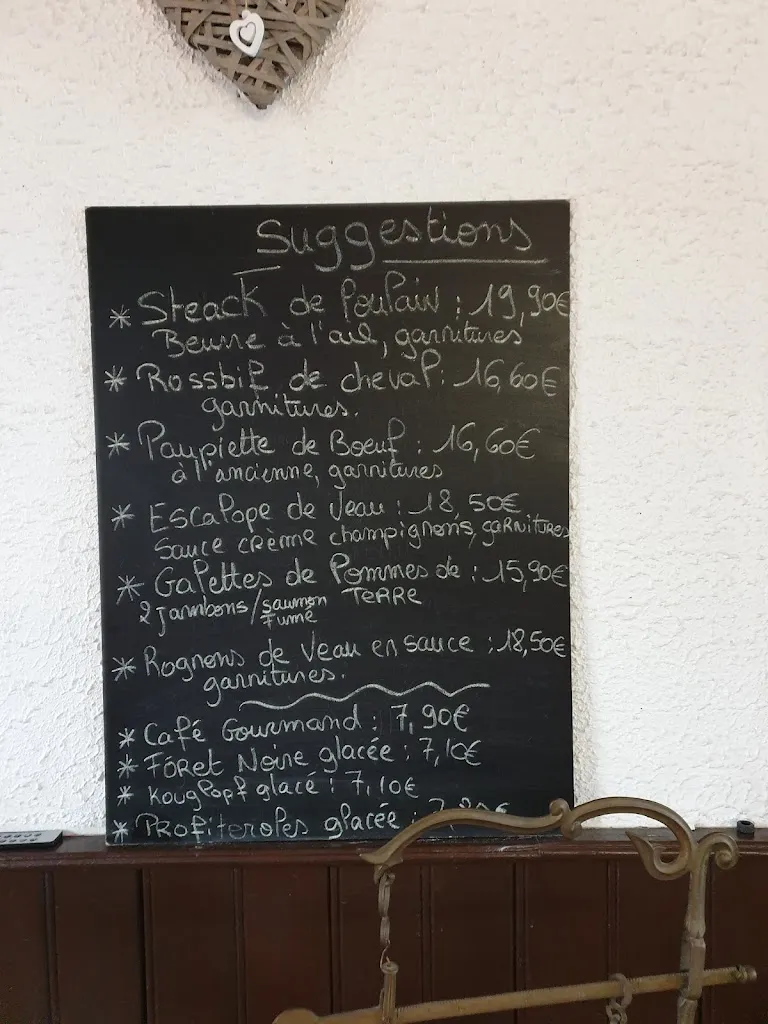 Suggestions
* Steack de Poulain : 19,90€
Beurre à l'ail, garnitures
* Rossbif de cheval : 16,60€
garnitures.
* Paupiette de Boeuf : 16,60€
à l'ancienne, garnitures
* Escalope de Veau : 18,50€
Sauce crème champignons, garnitures
* Galettes de Pommes de : 15,90€
2 jambons/saumon TERRE
Fumé
* Rognons de Veau en sauce : 18,50€
garnitures.
* Café Gourmand : 7,90€
* Fôret Noire glacée : 7,10€
* Kouglopf glacé : 7,10€
* Profiteroles glacée :